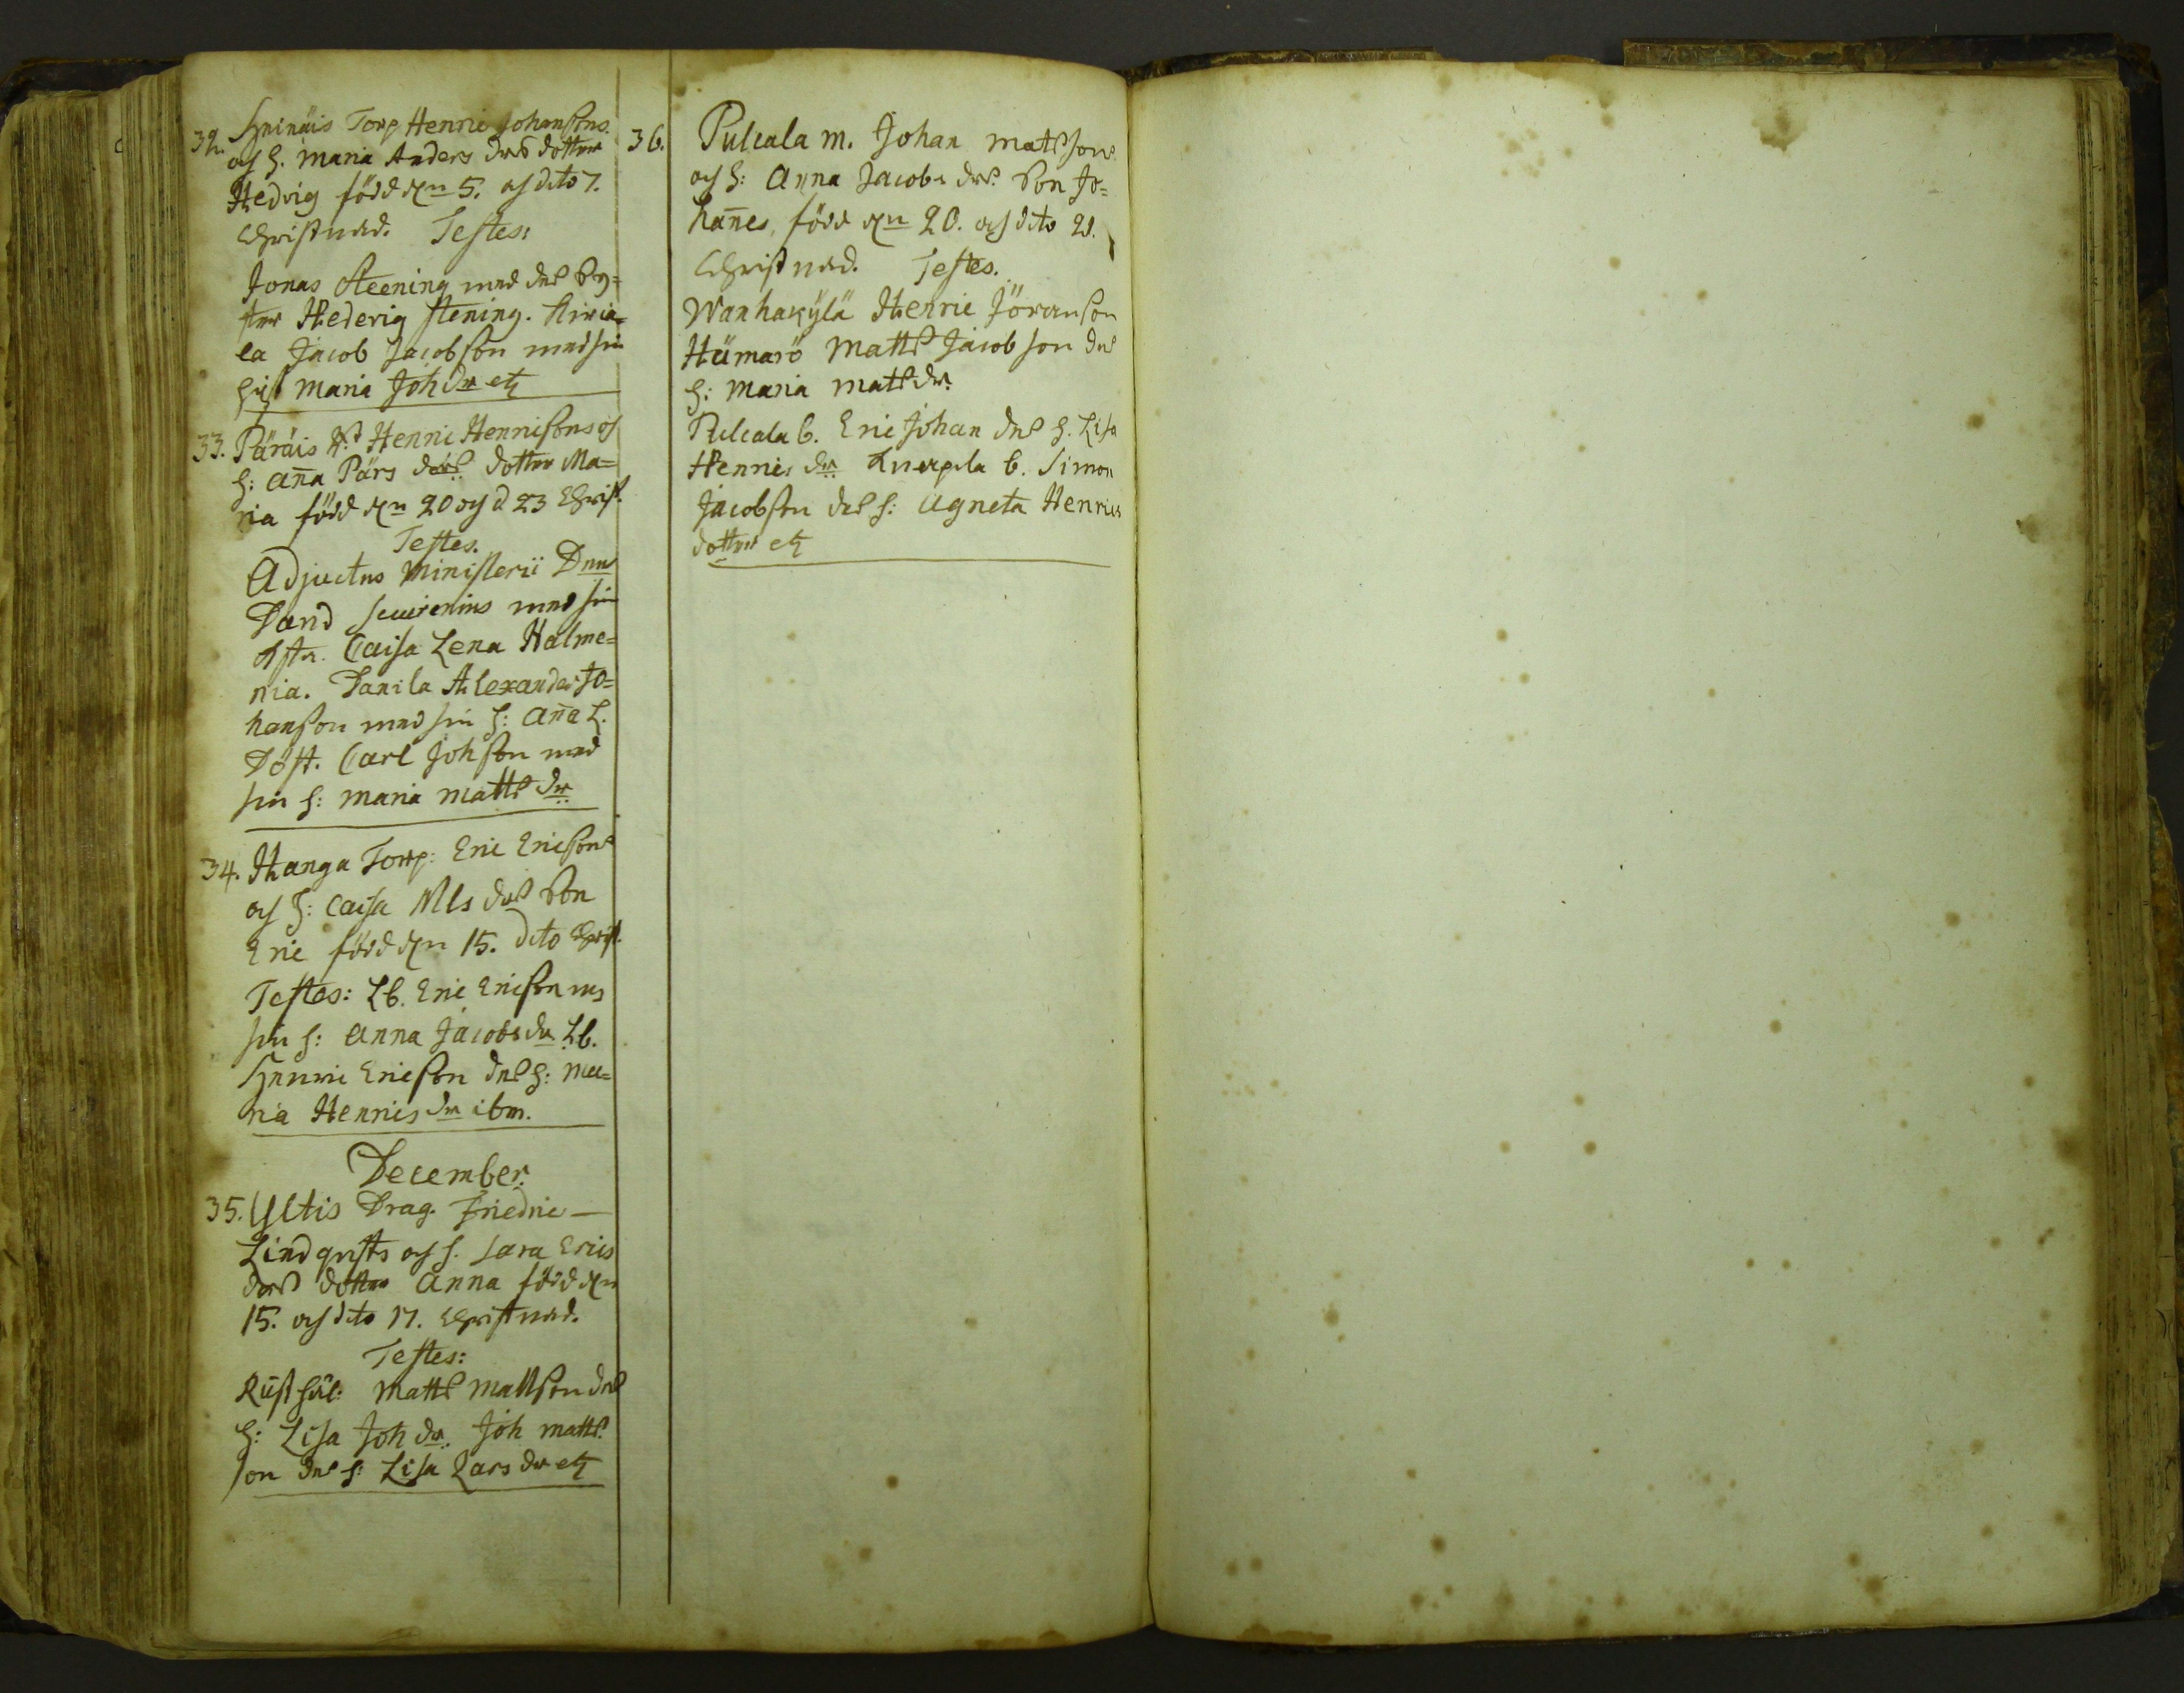 32. Heinäis Torp Henric Johansons.
och h. Maria Anders drs dotter
Hedvig född den 5. och dito 7.
Christnad. Testes:
Jonas Steening med des Sy=
ster Hedevig Stening. Kiria=
la Jacob Jacobson med sin
hust Maria Joh dr etc
33. Päräis Henric Henricsons och
h: Aña Pärs dotter Ma=
ria född den 20 och d 23 Christ.
Testes.
Adjuctus Ministerii Dnus
med sin
Caisa Lena Halme=
nia. Danila Alexander Jo=
hanson med sin h: Aña L.
Döft. Carl Johson med
sin h: Maria Matts dr
34. Hanga Torp: Eric Ericsons
och h: Caisa Nils drs son
Eric född den 15. dito Christ.
Testes: Lb. Eric Ericson m
sin h: Anna Jacobs dr Lb.
Henric Ericson des h: Ma=
ria Henrics dr ibm.
December.
35. Yltis Drag. Friedric
Lindqvists och h. Sara Erics
drs dotter Anna född den
15. och dito 17. Christnad.
Testes:
Rusthål: Matts Mattson des
h: Lisa Joh dr. Joh Matts
son des h: Lisa Lars dr etc
36. Pulcala m. Johan Matssons
och h: Anna Jacobs drs. Son Jo=
hañes, född den 20. och dito 21.
Christnad. Testes.
Wanhakylä Henric Jöranson
Hämarö Matts Jacobson des
h: Maria Matts dr.
Pulcala b. Eric Johan des h. Lisa
Henrics dr Knerpila b. Simon
Jacobson des h: Agneta Henrics
dotter etc